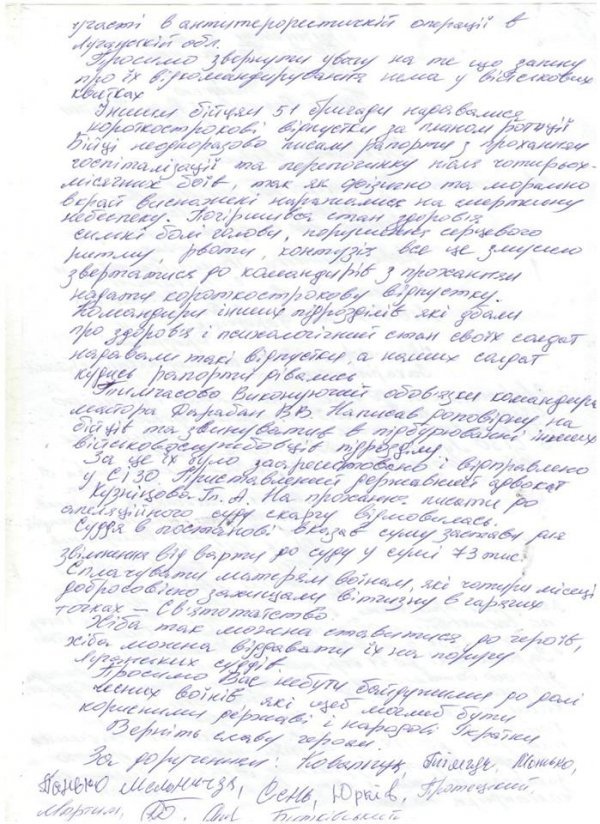 участі в антитерорестичкій операції в
Луганській обл.
Просимо звернути увагу на те що запису
про їх відкомандирування нема у військових
квитках
Іншим бійцям 51 бригади надавалися
короткострокові відпустки за планом ротації
Бійці неодноразово писали рапорти з проханням
госпіталізації та перепочинку після чотирьох-
місячних боїв, так як фізично та морально
вкрай виснажені наражались на смертельну
небезпеку. Погіршився стан здоров'я
сильні болі голови, порушення серцевого
ритму, рвоти, контузія все це змусило
звертатися до командирів з проханням
надати короткострокову відпустку.
Командири інших підрозділів які дбали
про здоров'я і психологічний стан своїх солдат
надавали такі відпустки, а наших солдат
кудись рапорти дівались
Тимчасово Виконуючий обов'язки командира
майора Дарабан В.В. Написав доповідну на
бійців та звинуватив в підбурюванні інших
військовослужбовців підрозділу.
За це їх було заарештовано і відправлено
у СІЗО Приставлений державний адвокат
Кузніцова Гл. А. На прохання писати до
апеляційного суду скаргу відмовилась.
Суддя в постанові вказав суму застави для
звільнення від варти до суду у сумі 73 тис.
Сплачувати матерям воїнам, які чотири місяці
добросовісно захищали вітчизну в гарячих
точках – Святотатство.
Хіба так можна ставитися до героїв,
хіба можна віддавати їх на поругу
Луганських суддів.
Просимо Вас небути байдужими до долі
чесних воїнів які щеб моглиб бути
корисними державі і народові України
Верніть славу героям.
За дорученням: Ковальчук,
Панько Мельничук, Сень, Юрків, Протецкий,
Мартин,